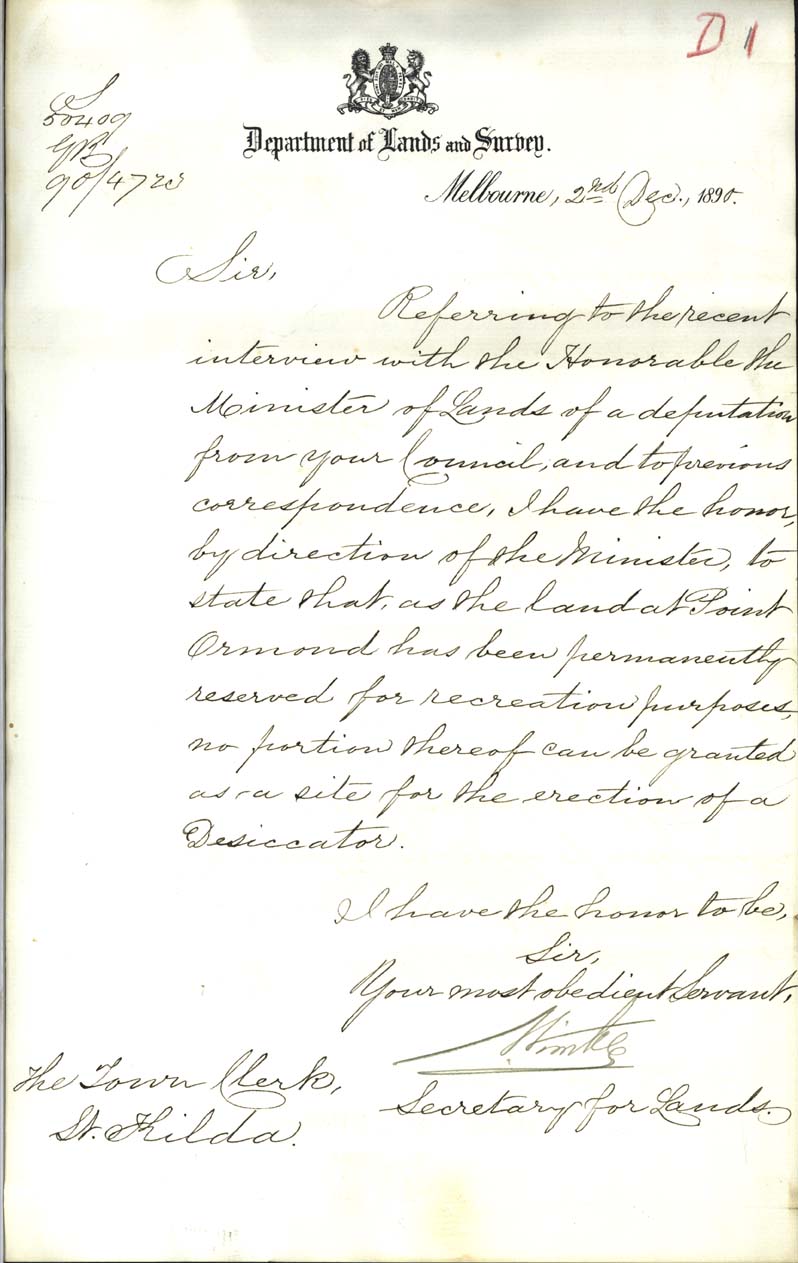 D 1
S
50409
90/4723
Department of Lands and Survey.
Melbourne, 2nd Dec., 1890.
Sir,
Referring to the recent
interview with the Honorable the
Minister of Lands of a deputation
from your Council, and to previous
correspondence, I have the honor,
by direction of the Minister, to
state that, as the land at Point
Ormond has been permanently
reserved for recreation purposes,
no portion thereof can be granted
as a site for the erection of a
Desiccator.
I have the honor to be,
Sir,
Your most obedient Servant,
Secretary for Lands.
The Town Clerk,
St. Kilda.